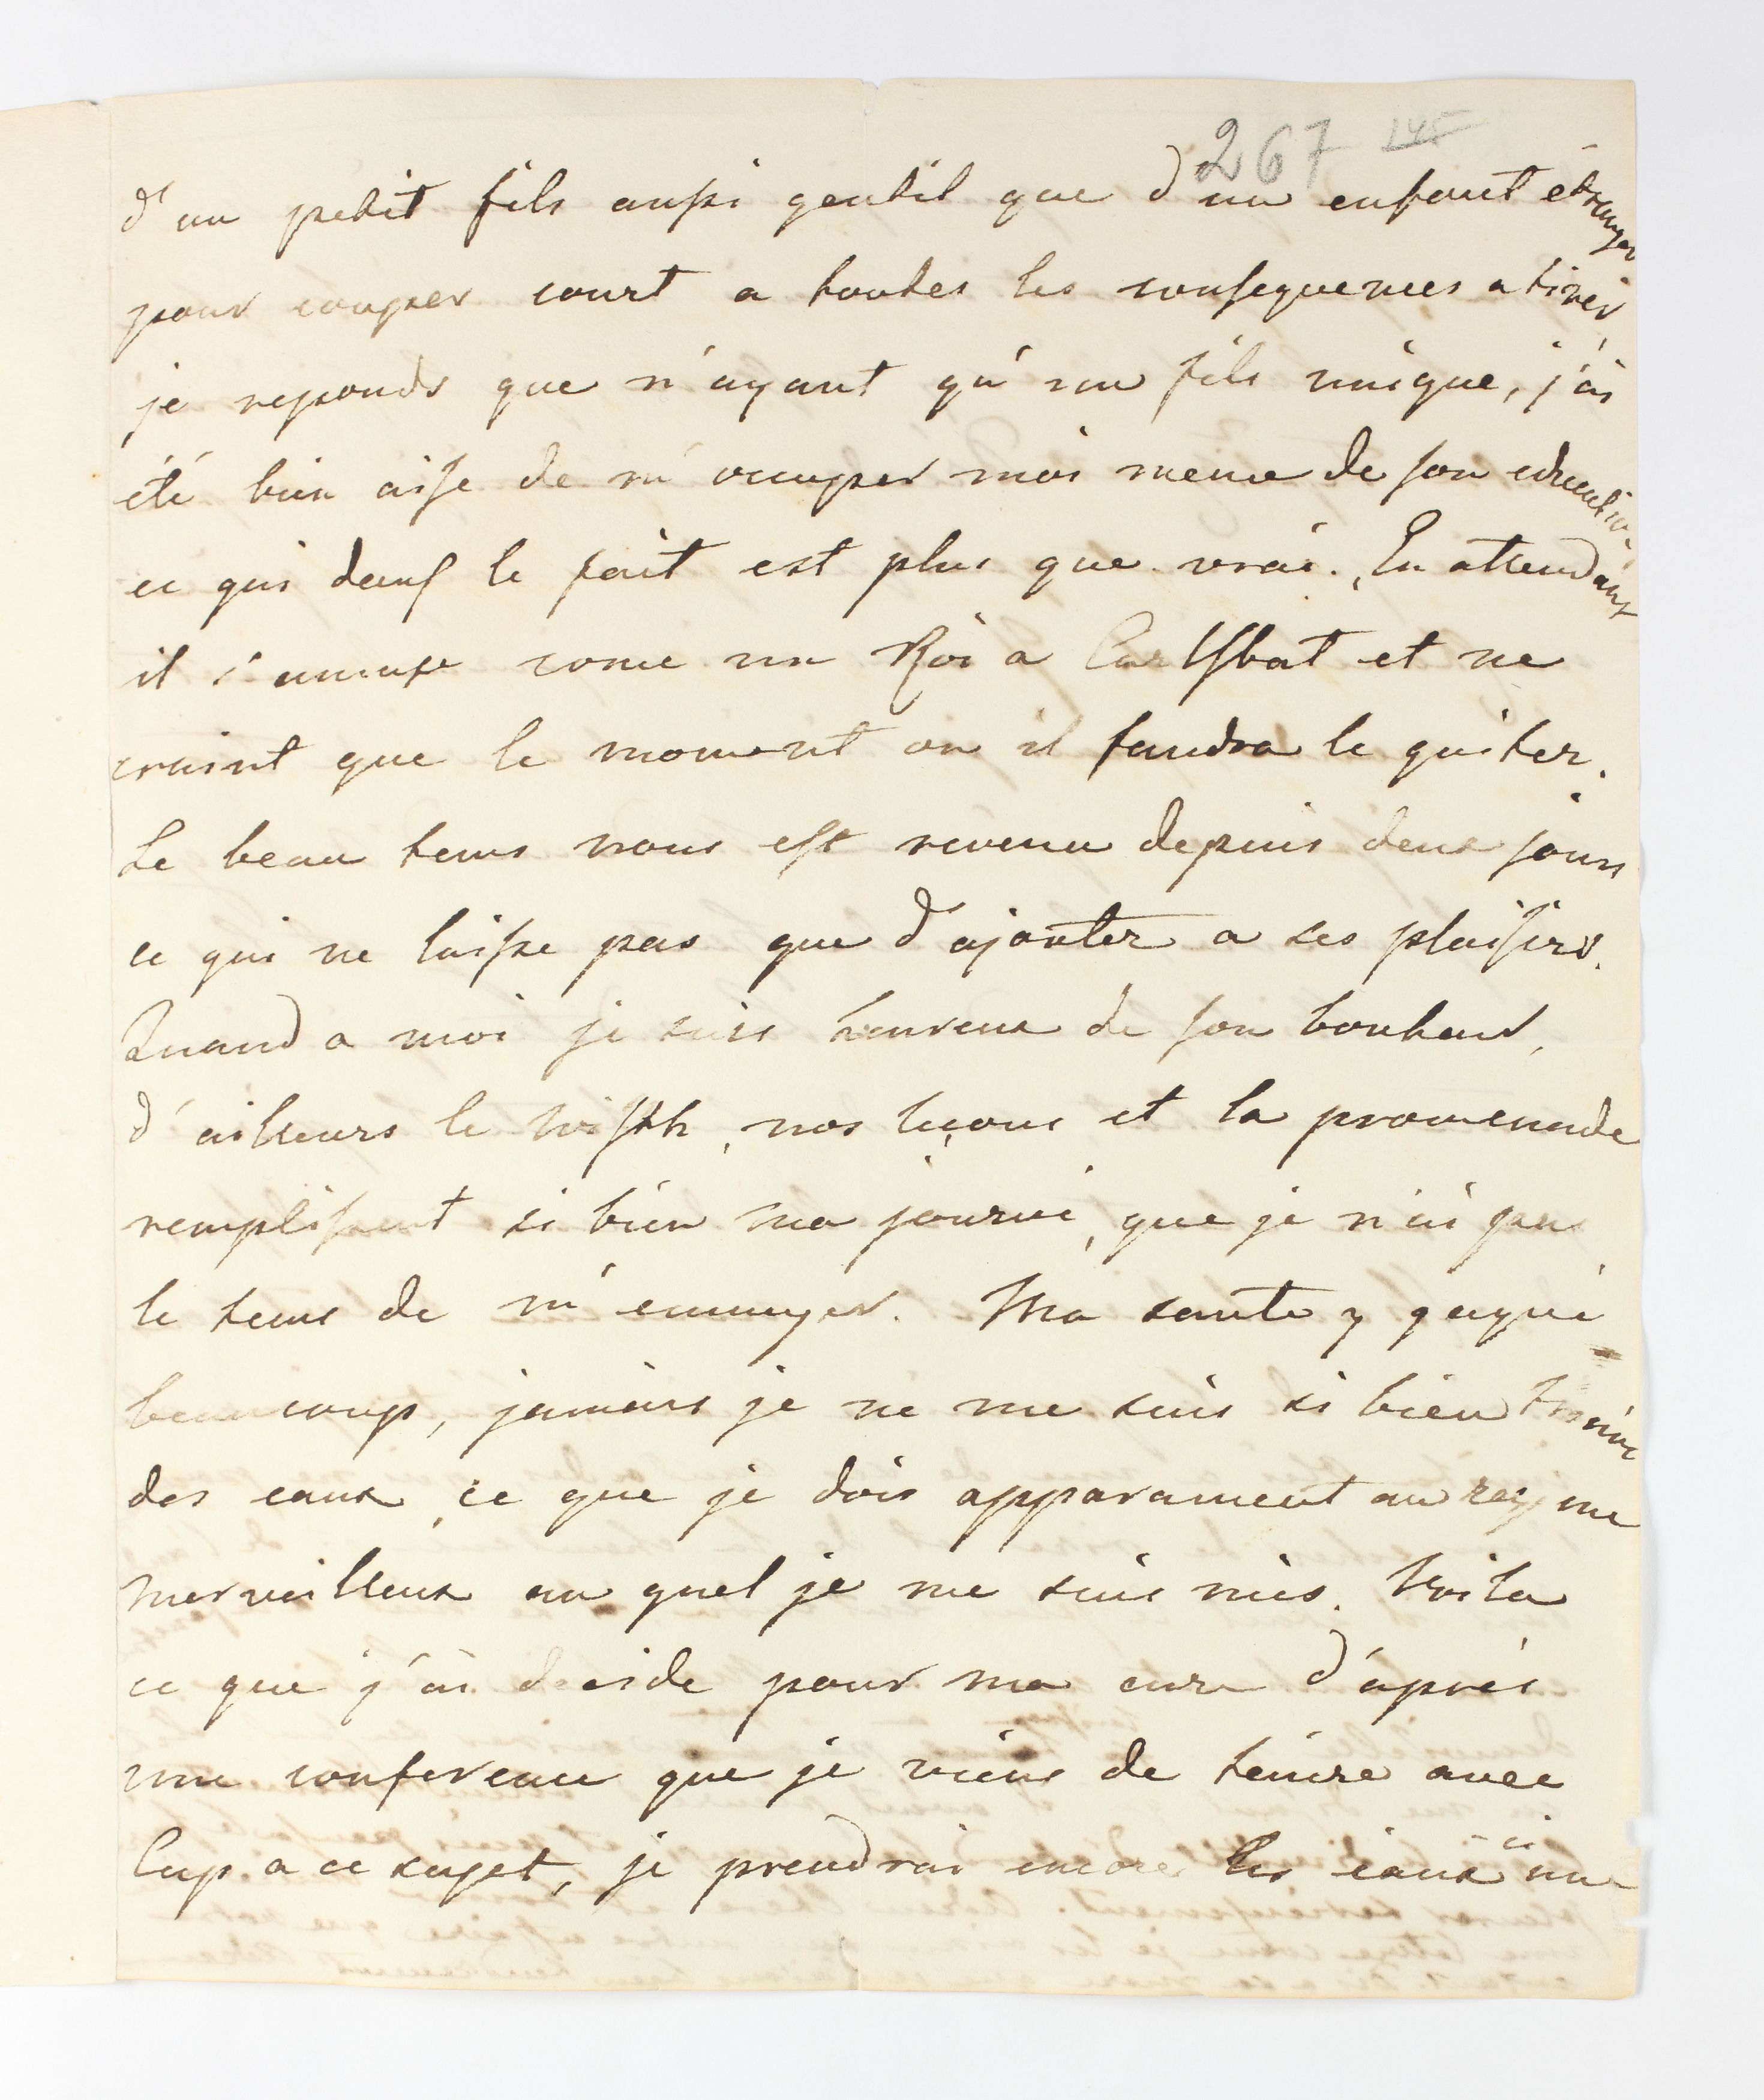 267 145
d'un petit fils aussi gentil que d'un enfant étranger
pour couper court a toutes les consequences a tirer,
je reponds que n'ayant qu'un fils unique, j'ai
été bien aise de m'occuper moi meme de son education,
ce qui dans le fait est plus que vrai. En attendant
il s'amuse come un Roi a Carlsbat et ne
craint que le moment ou il faudra le quiter.
Le beau tems nous est revenu depuis deux jours
ce qui ne laisse pas que d'ajouter a ses plaisirs.
Quand a moi je suis heureux de son bonheur,
d'ailleurs le wisth, nos leçons et la promenade
remplissent si bien ma journé, que je n'ai pas
le tems de m'ennuyer. Ma santé y gagne
beaucoup, jamais je ne me suis si bien trouvé
des eaux, ce que je dois apparament au regime
merveilleux au quel je me suis mis. Voila
ce que j'ai decide pour ma cure d'après
une conference que je viens de tenire avec
Cap a ce sujet, je prendrai encore les eaux ici une